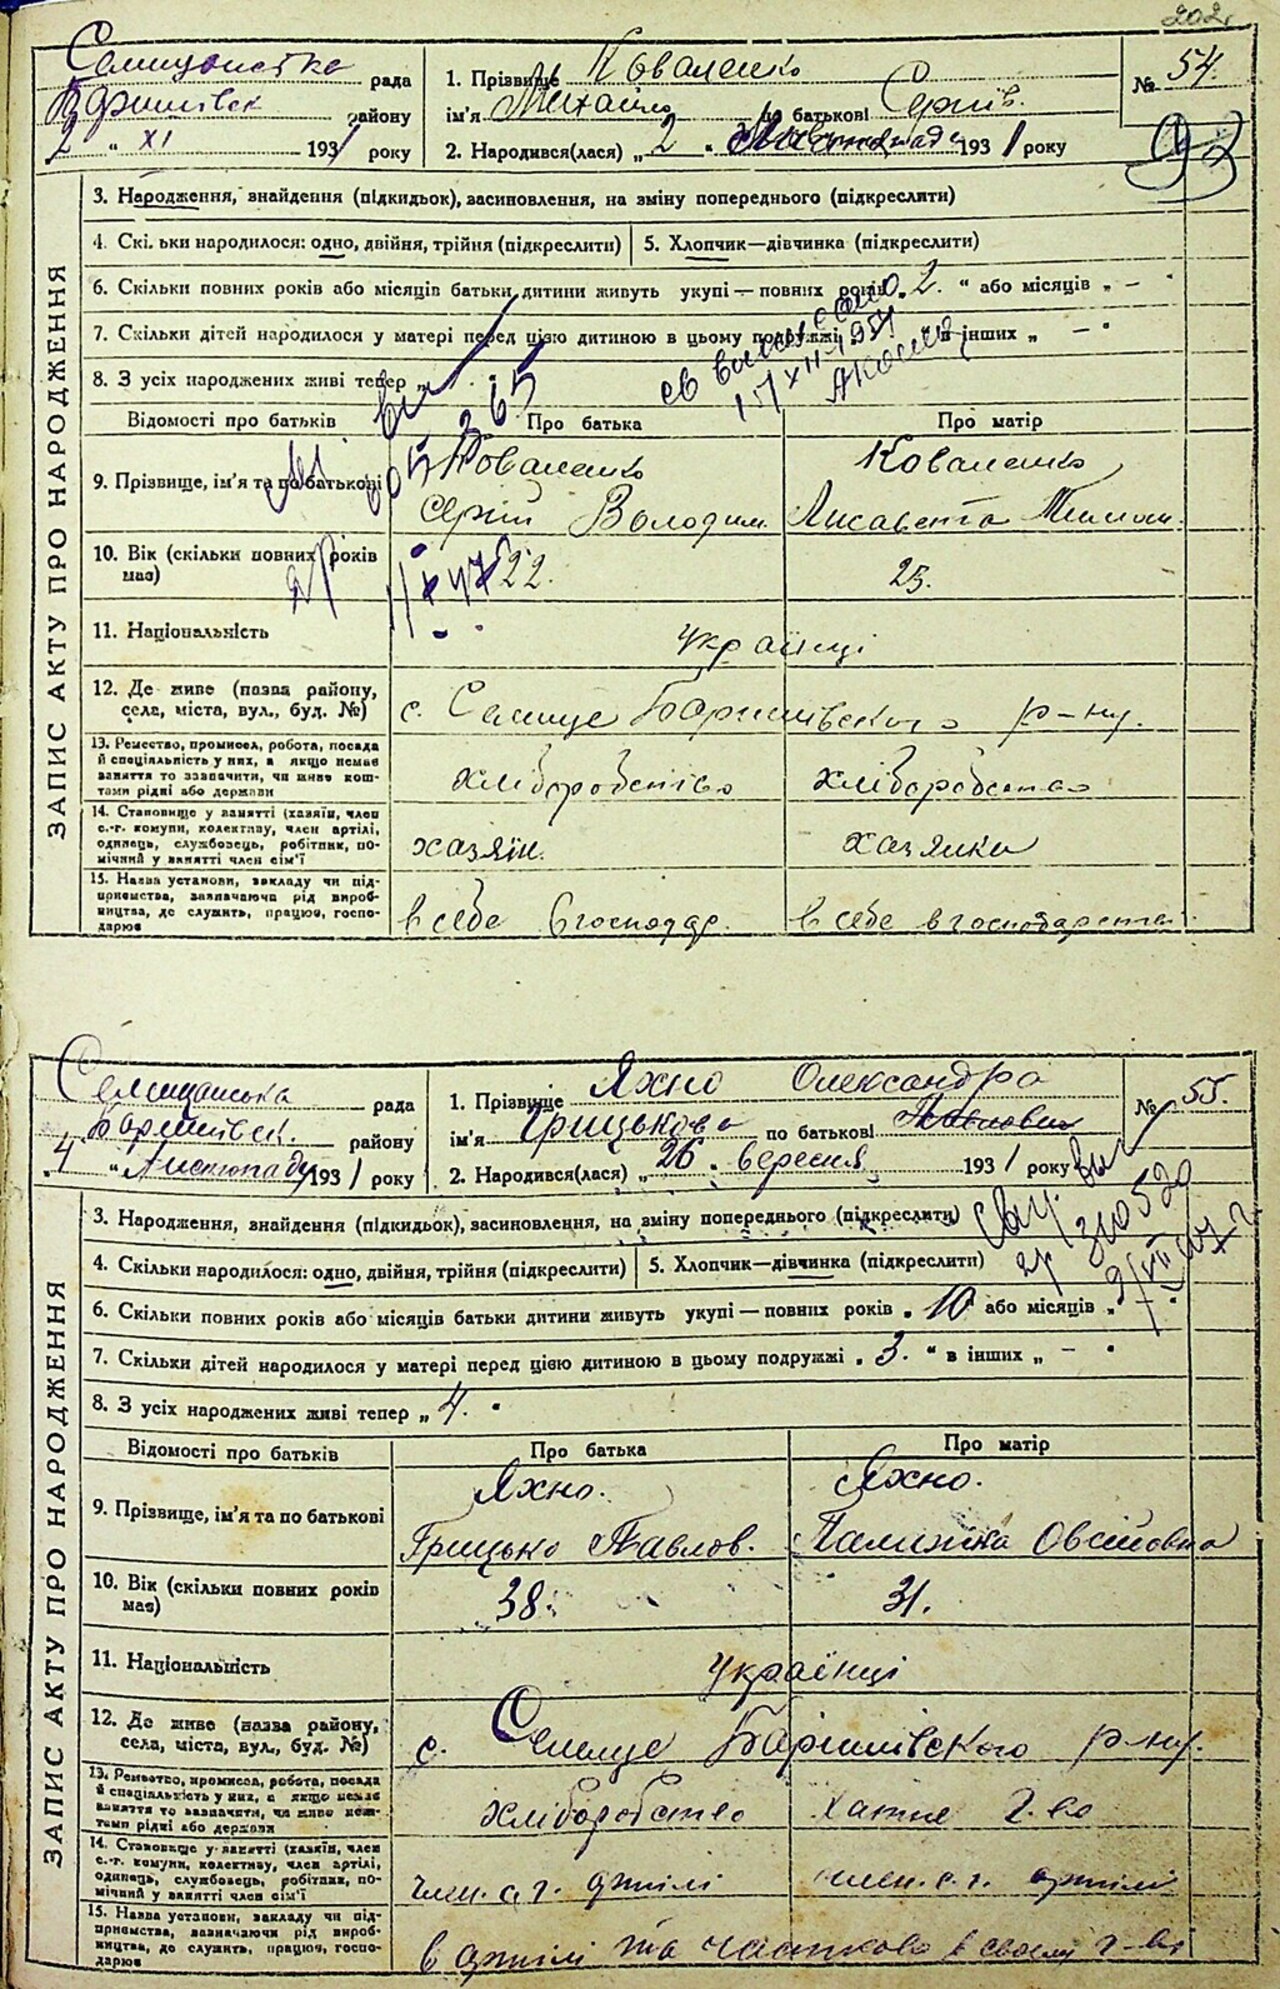 202
Селищанська рада
Баришівськ району
2 " XI 1931 року
1. Прізвище Коваленко
ім'я Михайло по батькові Сергіїв.
2. Народився(лася) „ 2 " Листопада 1931 року
№ 54.
3. Народження, знайдення (підкидьок), засиновлення, на зміну попереднього (підкреслити)
4. Скільки народилося: одно, двійня, трійня (підкреслити)
5. Хлопчик—дівчинка (підкреслити)
6. Скільки повних років або місяців батьки дитини живуть укупі — повних років „ 2. " або місяців „ – "
7. Скільки дітей народилося у матері перед цією дитиною в цьому подружжі в інших „ – "
8. З усіх народжених живі тепер „
17 XII-1951
ЗАПИС АКТУ ПРО НАРОДЖЕННЯ
Відомості про батьків
Про батька
Про матір
9. Прізвище, ім'я та по батькові
Коваленко
Сергій Володим.
Коваленко
Лисавета Тимош.
10. Вік (скільки повних років має)
22.
23.
11. Національність
українці
12. Де живе (назва району, села, міста, вул., буд. №)
с. Селище Баришівського р-ну.
13. Ремество, промисел, робота, посада й спеціальність у них, а якщо немає заняття то зазначити, чи живе коштами рідні або держави
хліборобство
хліборобство
14. Становище у занятті (хазяїн, член с.-г. комуни, колективу, член артілі, одинець, службовець, робітник, помічний у занятті член сім'ї
хазяїн.
хазяйка
15. Назва установи, закладу чи підприємства, зазначаючи рід виробництва, де служить, працює, господарює
в себе в господар.
в себе в господарстві.
Селищанська рада
Баришівськ. району
„ 4 " Листопаду 1931 року
1. Прізвище Яхно Олександра
ім'я Грицькова по батькові Павлович
2. Народився(лася) „ 26 " вересня 1931 року
№ 55.
3. Народження, знайдення (підкидьок), засиновлення, на зміну попереднього (підкреслити)
4. Скільки народилося: одно, двійня, трійня (підкреслити)
5. Хлопчик—дівчинка (підкреслити)
6. Скільки повних років або місяців батьки дитини живуть укупі — повних років „ 10 " або місяців „
7. Скільки дітей народилося у матері перед цією дитиною в цьому подружжі „ 3. " в інших „ – "
8. З усіх народжених живі тепер „ 4. "
ЗАПИС АКТУ ПРО НАРОДЖЕННЯ
Відомості про батьків
Про батька
Про матір
9. Прізвище, ім'я та по батькові
Яхно.
Грицько Павлов.
Яхно.
Палижка Овсіївна
10. Вік (скільки повних років має)
38.
31.
11. Національність
українці
12. Де живе (назва району, села, міста, вул., буд. №)
с. Селище Баришівського р-ну.
13. Ремество, промисел, робота, посада й спеціальність у них, а якщо немає заняття то зазначити, чи живе коштами рідні або держави
хліборобство
хатнє г-во
14. Становище у занятті (хазяїн, член с.-г. комуни, колективу, член артілі, одинець, службовець, робітник, помічний у занятті член сім'ї
член. с. г. артілі
член. с. г. артілі
15. Назва установи, закладу чи підприємства, зазначаючи рід виробництва, де служить, працює, господарює
в артілі та частково в своєму г-ві